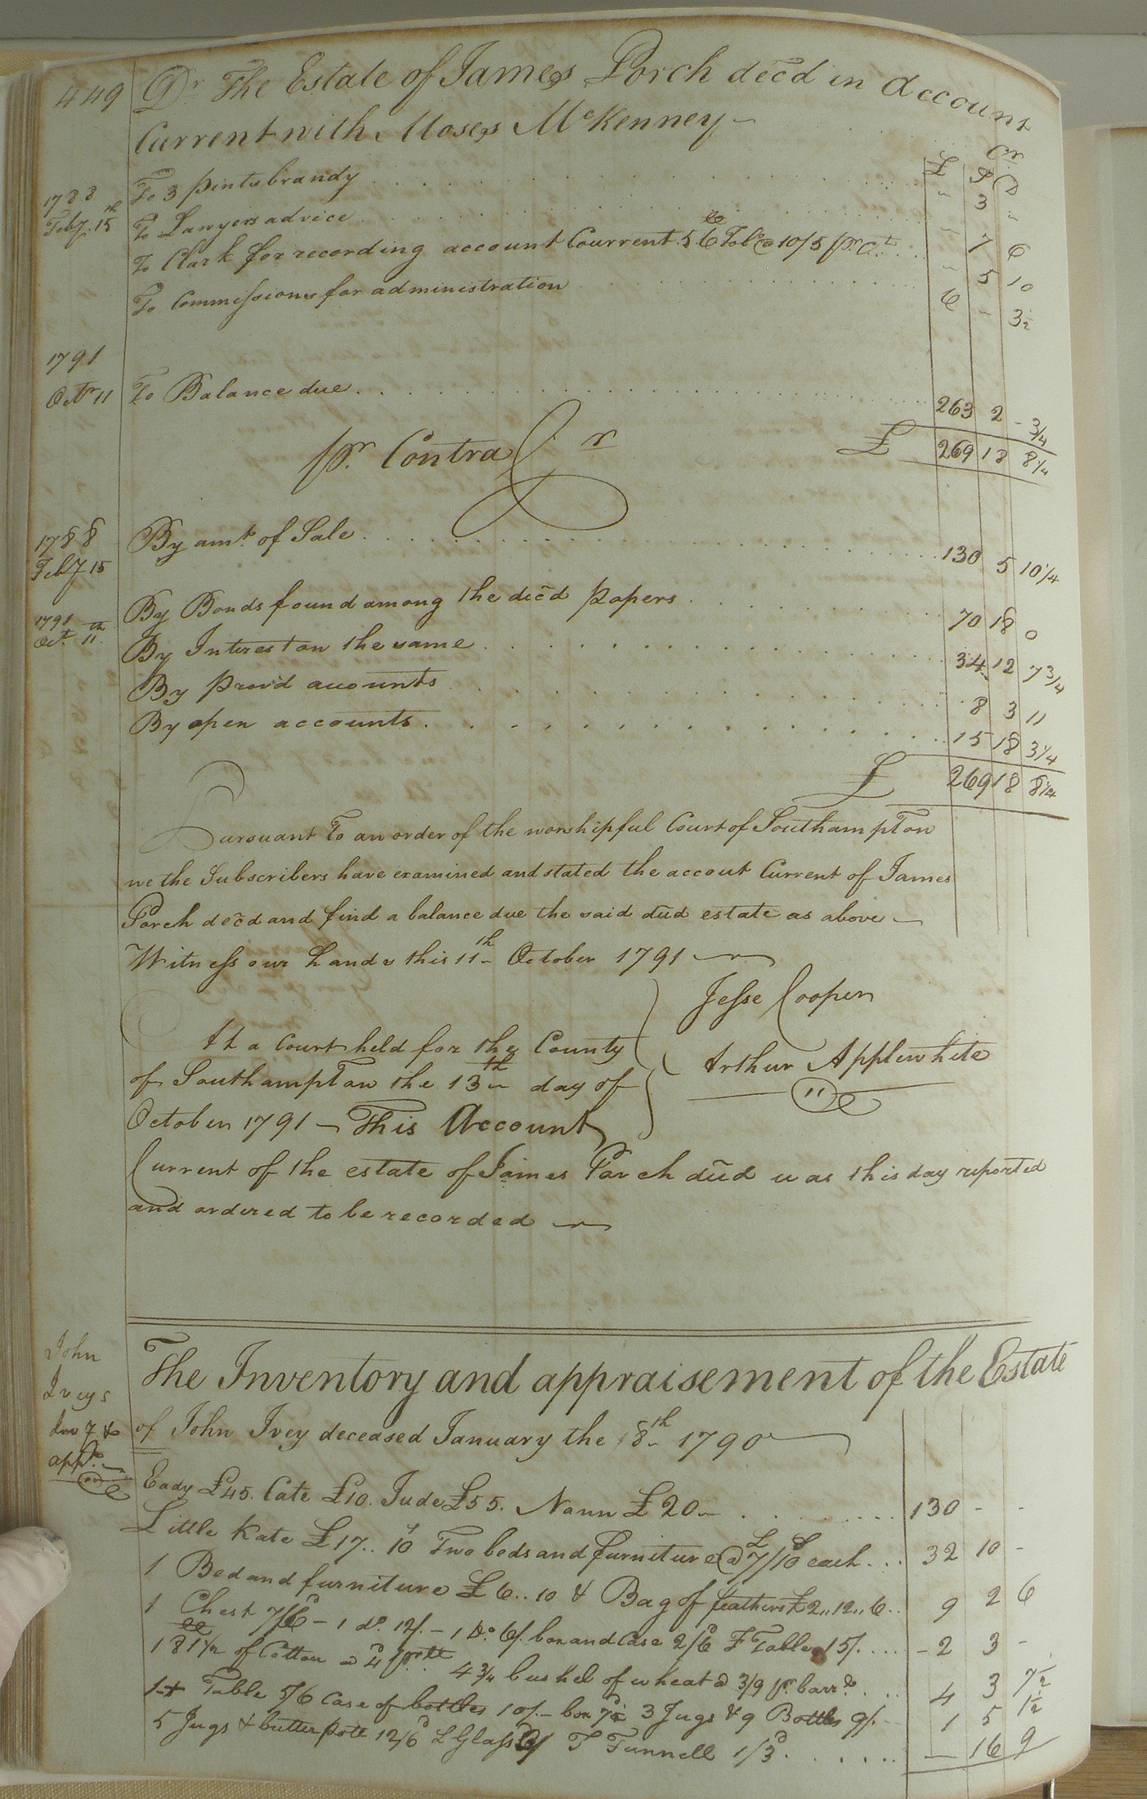 449 Dr. The Estate of James Porch dec̃d in Account
Current with Moses McKenney — Cr
£ S D
1788 To 3 pints brandy . . . " 3 "
Feby. 15th To Lawyers advice . . . " 7 6
To Clark for recording account Courrent 56 lb Tobo @ 10/5 pr. Ct. . . . " 5 10
To Commissions for administration . . . 6 - 3½
1791
Octr 11 To Balance due . . . 263 2 - ¾
pr. Contra Cr £ 269 18 8¼
1788
Feby 15 By amt. of Sale . . . 130 5 10¼
1791 By Bonds found among the dec̃d papers . . . 70 18 0
Oct. 11th By Interest on the same . . . 34 12 7¾
By prov'd accounts . . . 8 3 11
By open accounts . . . 15 18 3¼
£ 269 18 8¼
Pursuant To an order of the worshipful Court of Southampton
we the Subscribers have examined and stated the accout Current of James
Porch dec̃d and find a balance due the said dec̃d estate as above —
Witness our hands this 11th October 1791
Jesse Cooper
At a Court held for the County
Arthur Applewhite
of Southampton the 13th day of
October 1791 — This Account
Current of the estate of James Porch dec̃d was this day reported
and ordered to be recorded —
John
Iveys
Inv7 &
appt.
The Inventory and appraisement of the Estate
of John Ivey deceased January the 8th 1790
Eady £45. Cate £10. Jude £55. Nann £20 — . . . 130 - -
Little Kate £17..10 Two beds and furniture @ £7/10S each . . . 32 10 -
1 Bed and furniture £6..10 & Bag of feathers £2..12..6 . . 9 2 6
1 Chest 7/6 — 1 do. 12/. — 1 do. 6/ box and Case 2/6 F Table 15/. . . . - 2 3 -
181½ of Cotton @ 4d pr lb 4¾ bushel of wheat @ 3/9 pr. barrl. . . 4 3 7½
1 Table 5/6 Case of bottles 10/. — box 7d½ 3 Jugs & 9 Bottles 9/. — 1 5 1½
5 Jugs & butter pott 12/6 L Glass 3/ T Funnell 1/3d . . . . . — 16 9